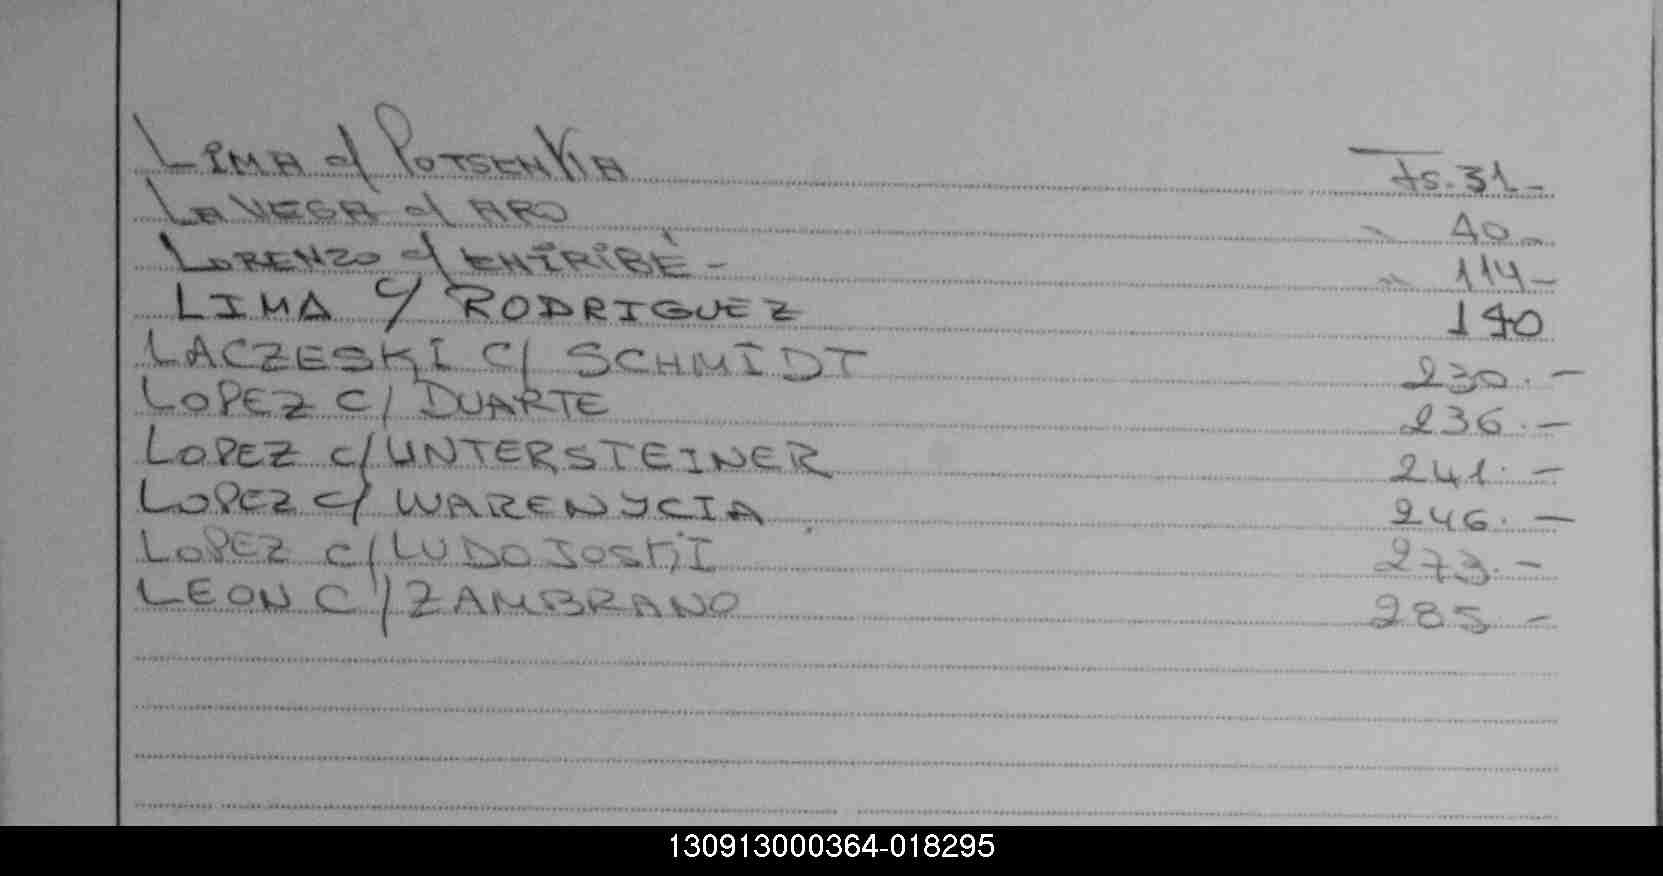 LIMA c/ POTSENKIA fs. 31-
LA VEGA c/ ARO " 40-
LORENZO c/ EMIRIBÉ - " 114-
LIMA c/ RODRIGUEZ 140
LACZESKI C/ SCHMIDT 230.-
LOPEZ C/ DUARTE 236.-
LOPEZ c/ UNTERSTEINER 241.-
LOPEZ c/ WARENYCIA 246.-
LOPEZ c/ LUDOJOSKI 273.-
LEON C/ ZAMBRANO 285-
130913000364-018295